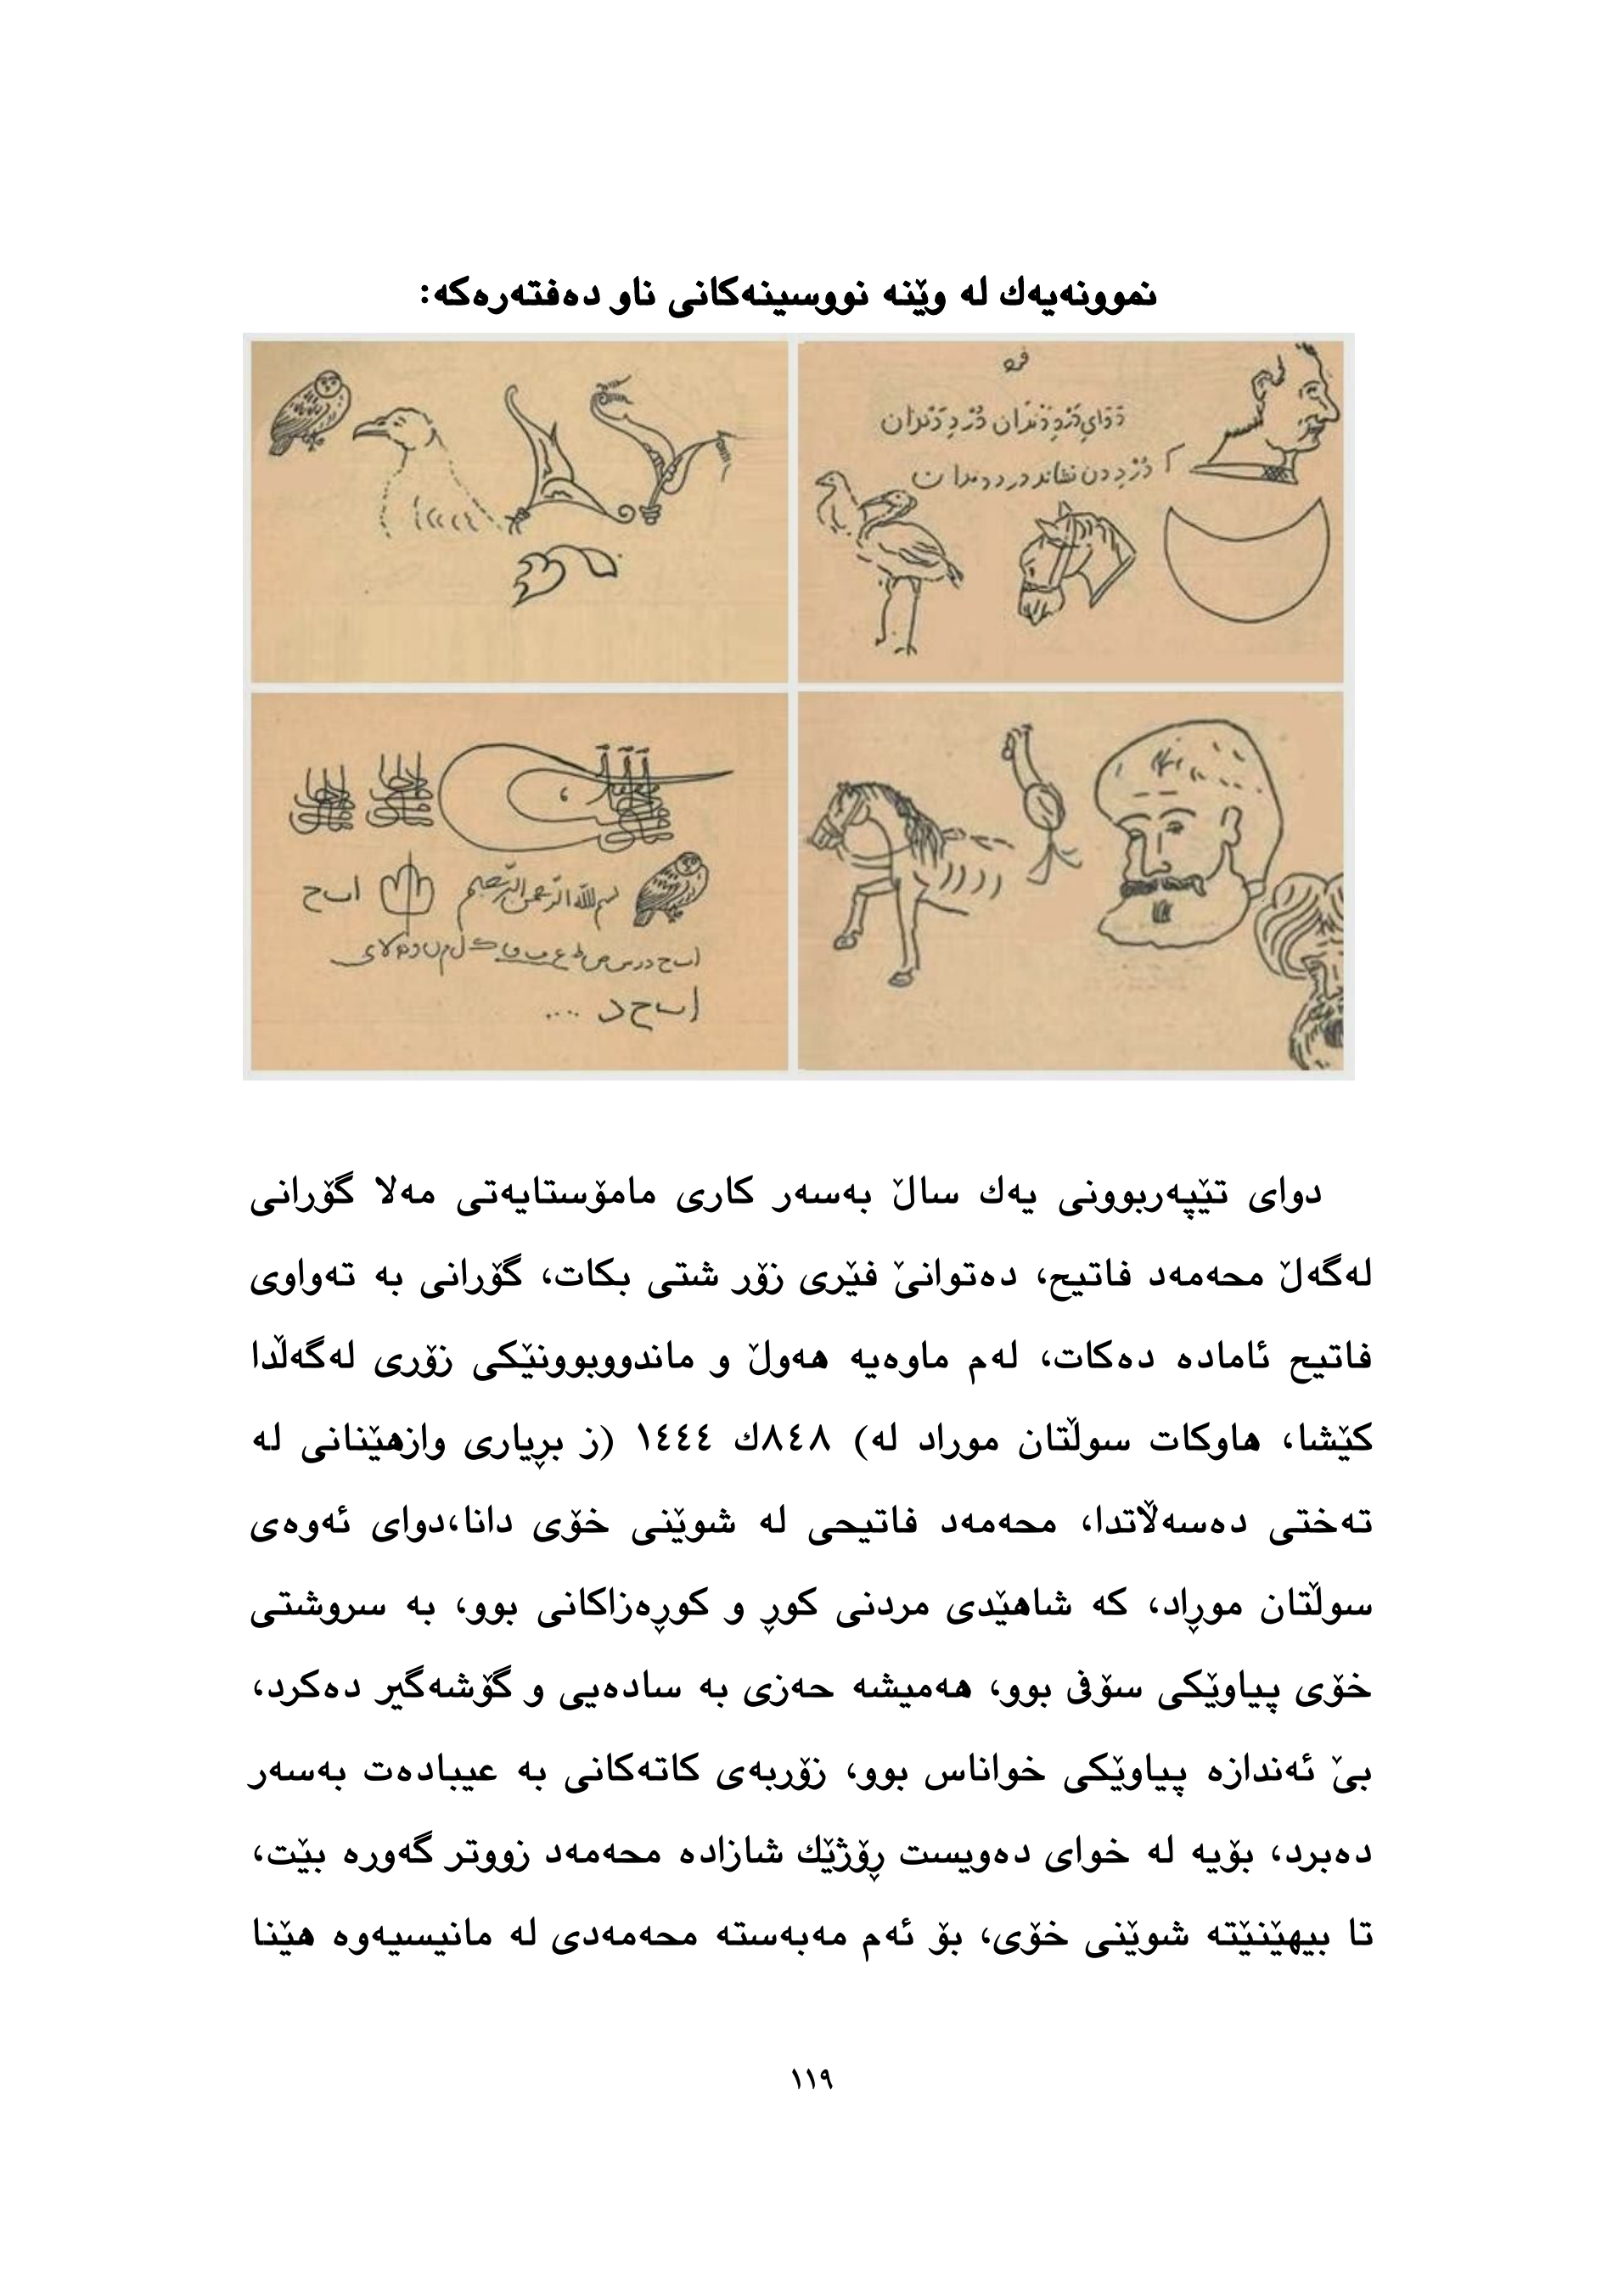 نموونەیەك لە وێنە نووسینەکانی ناو دەفتەرەکە:
بسم الله الرحمن الرحيم
ا ب ح
ا ب ح د ....
دوای تێپەربوونی یەك ساڵ بەسەر کاری مامۆستایەتی مەلا گۆرانی
لەگەڵ محەمەد فاتیح، دەتوانێ فێری زۆر شتی بکات، گۆرانی بە تەواوی
فاتیح ئامادە دەکات، لەم ماوەیە هەوڵ و ماندووبوونێکی زۆری لەگەڵدا
کێشا، هاوکات سوڵتان موراد لە) ٨٤٨ك ١٤٤٤ (ز بڕیاری وازهێنانی لە
تەختی دەسەڵاتدا، محەمەد فاتیحی لە شوێنی خۆی دانا،دوای ئەوەی
سوڵتان موڕاد، کە شاهێدی مردنی کوڕ و کوڕەزاکانی بوو، بە سروشتی
خۆی پیاوێکی سۆفی بوو، هەمیشە حەزی بە سادەیی و گۆشەگیر دەکرد،
بێ ئەندازە پیاوێکی خواناس بوو، زۆربەی کاتەکانی بە عیبادەت بەسەر
دەبرد، بۆیە لە خوای دەویست ڕۆژێك شازادە محەمەد زووتر گەورە بێت،
تا بیهێنێتە شوێنی خۆی، بۆ ئەم مەبەستە محەمەدی لە مانیسیەوە هێنا
١١٩